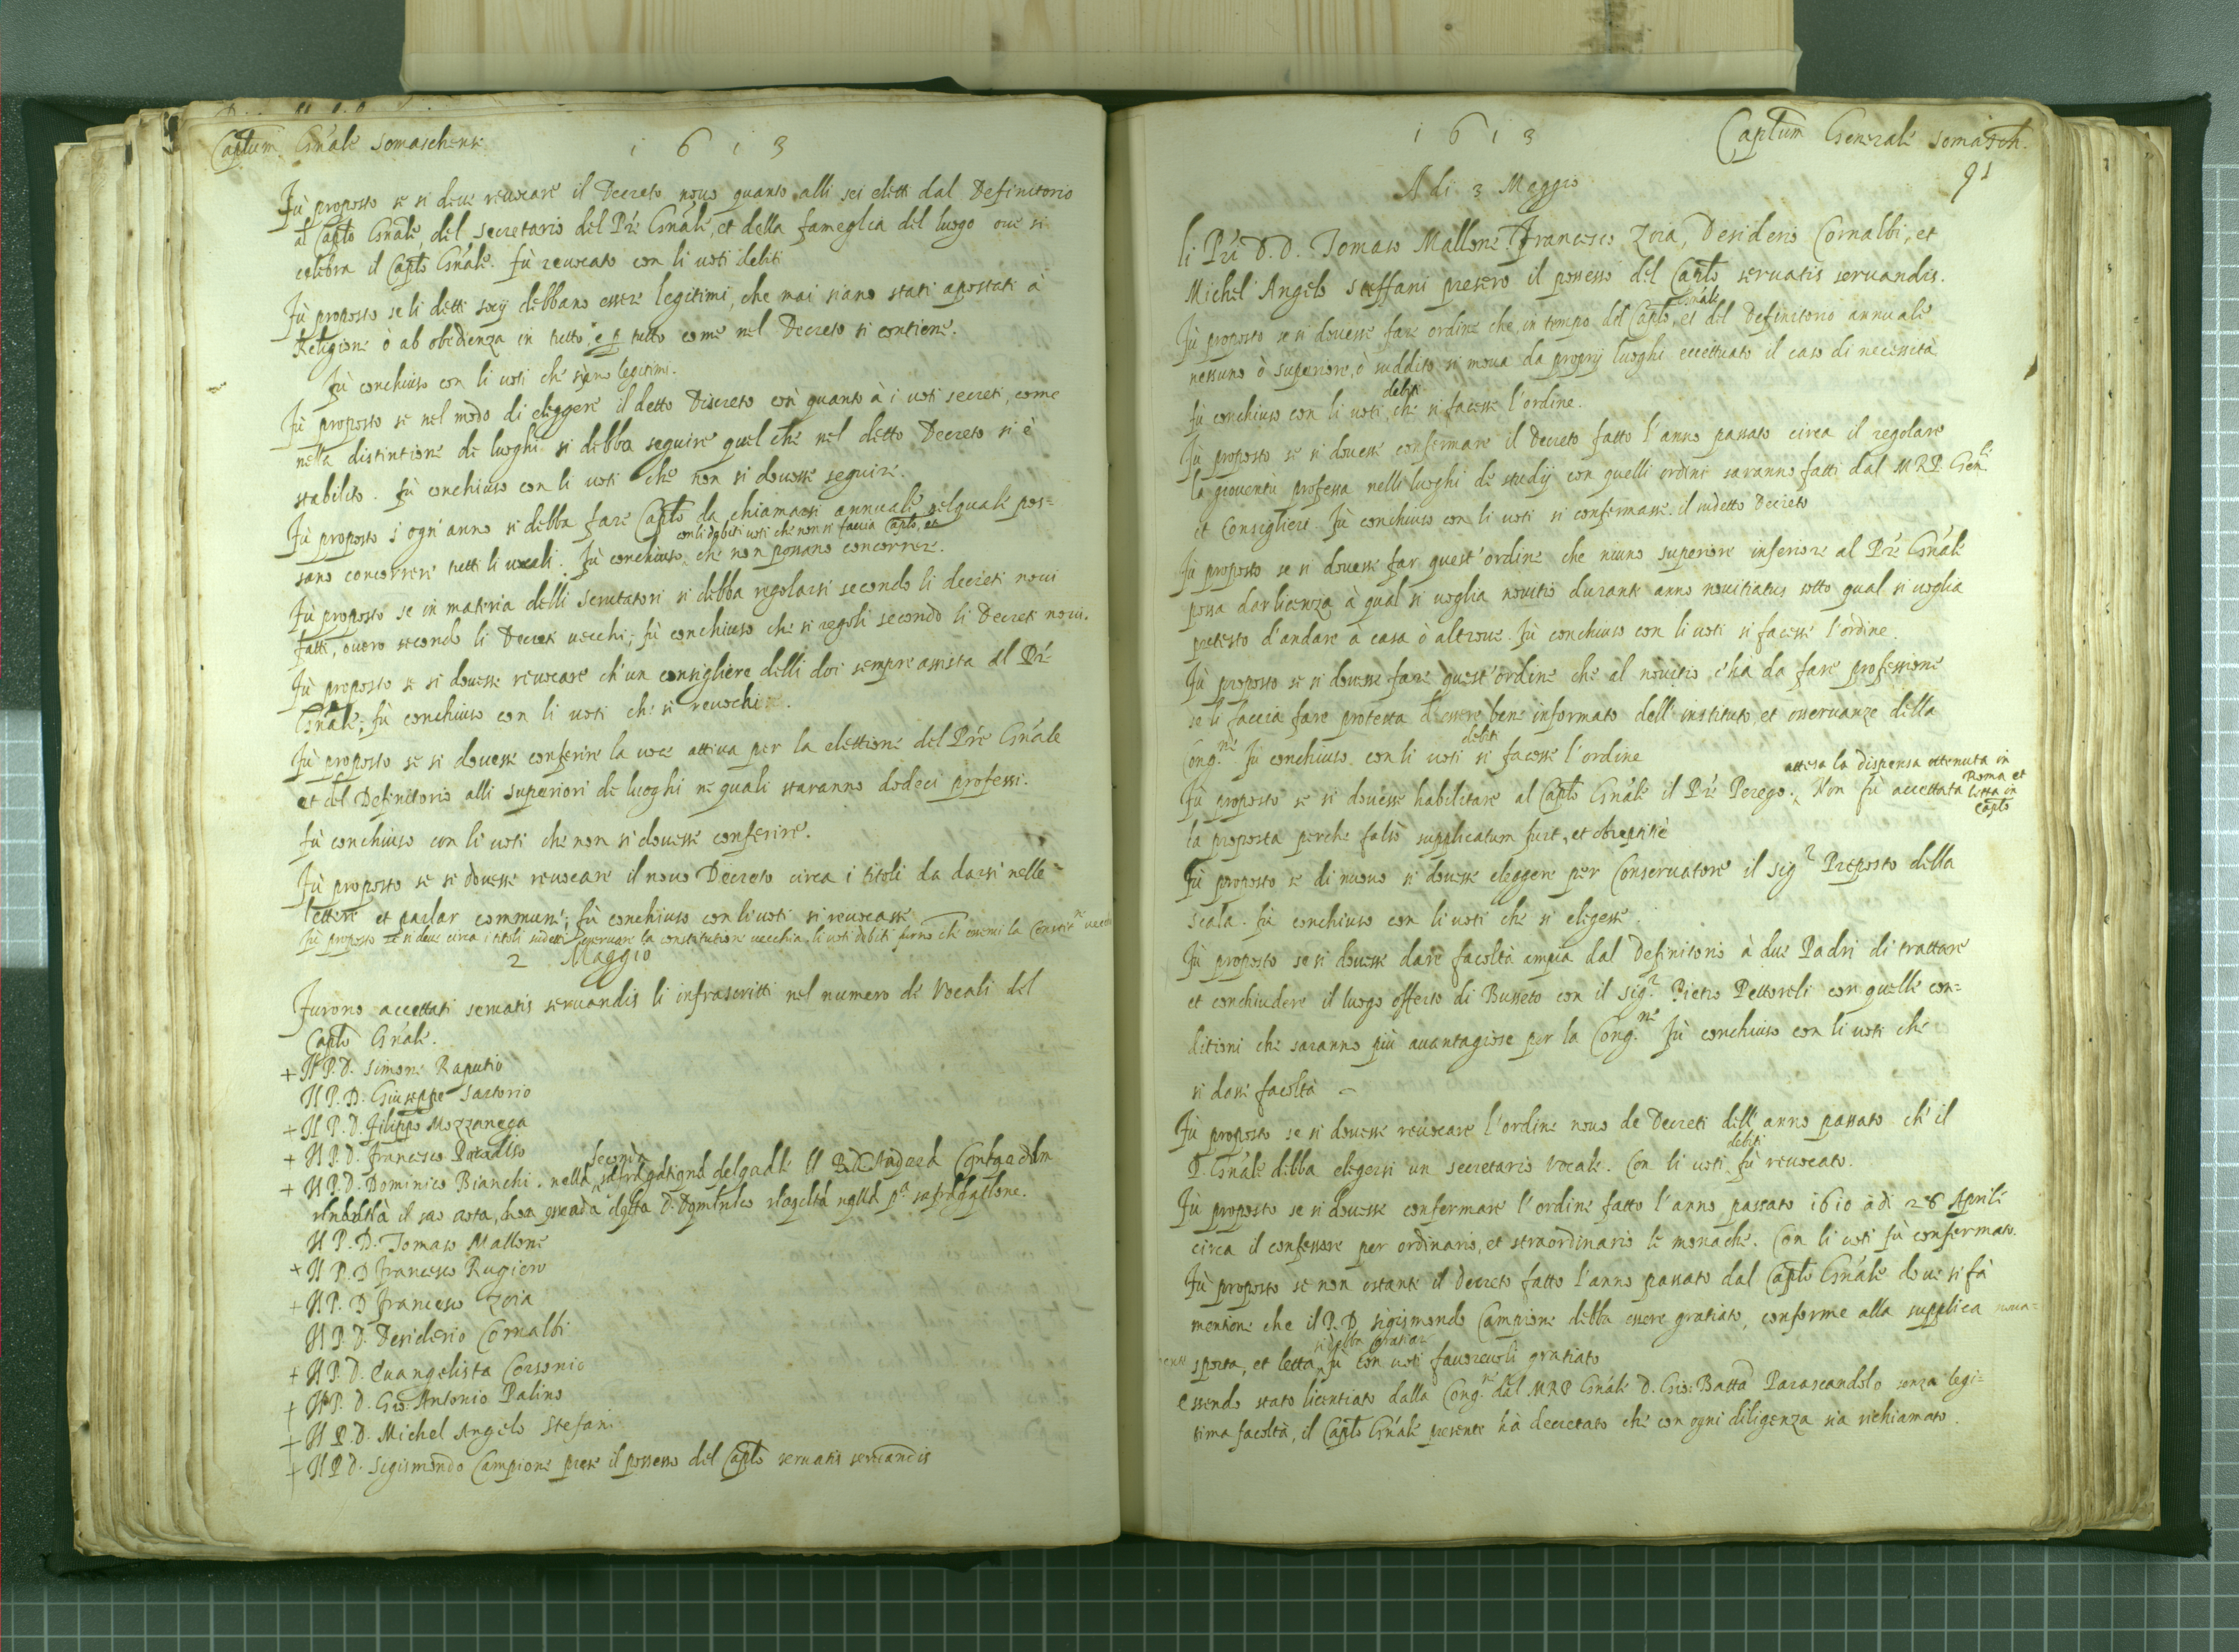 Captum. Gnale Somaschense
1613
Fù proposto se si deve revocare il Decreto novo quanto alli sei eletti dal Definitorio
al Caplo Gnale, del secretario del Pre Gnale, et della fameglia del luogo ove si
celebra il Caplo Gnale. fù revocato con li voti debiti
Fù proposto se li detti socij debbano essere legitimi, che mai siano stati apostati à
Religione ò ab obedienza in tutto, e p tutto come nel Decreto si contiene.
Fù conchiuso con li voti che siano legitimi.
Fù proposto se nel modo di eleggere il detto Discreto così quanto à i voti secreti, come
nella distintione de luoghi si debba seguire quel che nel detto Decreto si è
stabilito. fù conchiuso con li voti che non si dovesse seguire.
Fù proposto s'ogn'anno si debba fare Caplo da chiamarsi annuale nel quale pos=
con li debiti voti che non si faccia Caplo, et
sano concorrere tutti li vocali. Fù conchiuso che non possano concorrere.
Fù proposto se in materia delli scrutatori si debba regolarsi secondo li decreti novi
fatti, overo secondo li Decreti vecchi; fù conchiuso che si regoli secondo li Decreti novi.
Fù proposto se si dovesse revocare ch'un consigliere delli doi sempre assista al Pre
Gnale; fù conchiuso con li voti che si revochi
Fù proposto se si dovesse conferire la voce attiva per la elettione del Pre Gnale
et del Definitorio alli superiori de luoghi ne quali staranno dodeci professi.
fù conchiuso con li voti che non si dovesse conferire.
Fù proposto se si dovesse revocare il novo Decreto circa i titoli da darsi nelle
lettere et parlar commune; fù conchiuso con li voti si revocasse
Fù proposto se si deve circa i titoli sudetti osservare la constitutione vecchia, li voti debiti furno che osservi la vecchia
2 Maggio
Furono accettati servatis servandis li infrascritti nel numero de Vocali del
Caplo Gnale.
+ Il P. D. Simone Raputio
Il P. D. Giuseppe Sartorio
+ Il P. D. Filippo Mozzanega
+ Il P. D. Francesco Paradiso
seconda
+ Il P. D. Dominico Bianchi. nella
il suo
Il P. D. Tomaso Mallone
+ Il P. D Francesco Rugiero
+ Il P. D Francesco Zoia
Il P. D. Desiderio Cornalbi
+ Il P. D. Evangelista Corsonio
+ Il P. D. Gio: Antonio Palino
+ Il P. D. Michel Angelo Stefani
+ Il P D. Sigismondo Campione prese il possesso del Caplo servatis servandis
1613
Captum Generale Somasch.
91
A di 3 Maggio
li Pri D. D. Tomaso Mallone Francesco Zoia, Desiderio Cornalbi, et
Michel Angelo Steffani presero il possesso del Caplo servatis servandis.
Gnale
Fù proposto se si dovesse fare ordine che in tempo del Caplo, et del Definitorio annuale
nessuno ò superiore, ò suddito si mova da proprij luoghi eccettuato il caso di necessità
debiti
fù conchiuso con li voti che si facesse l'ordine.
Fù proposto se si dovesse confermare il Decreto fatto l'anno passato circa il regolare
la gioventù professa nelli luoghi de studij con quelli ordini saranno fatti dal M R P. Genle
et Consiglieri. Fù conchiuso con li voti si confermasse il sudetto Decreto
Fù proposto se si dovesse far quest'ordine che niuno superiore inferiore al Pre Gnale
possa dar licenza à qual si voglia novitio durante anno novitiatus sotto qual si voglia
pretesto d'andare à casa ò altrove. Fù conchiuso con li voti si facesse l'ordine.
Fù proposto se si dovesse fare quest'ordine che al novitio c'hà da fare professione
se li faccia fare protesta d'essere bene informato dell'instituto, et osservanze della
debiti
Cong.ne Fù conchiuso con li voti si facesse l'ordine
attesa la dispensa ottenuta in Roma et letta in Caplo
Fù proposto se si dovesse habilitare al Caplo Gnale il Pre Perego. Non fù accettata
la proposta perche falsò supplicatum fuit, et obreptitiè
Fù proposto se di nuovo si dovesse eleggere per Conservatore il sigr Preposto della
Scala. fù conchiuso con li voti che si eligesse.
Fù proposto se si dovesse dare facoltà ampia dal Definitorio à due Padri di trattare
et conchiudere il luogo offerto di Busseto con il sigr Pietro Pettorelli con quelle con=
ditioni che saranno più avantagiose per la Cong.ne Fù conchiuso con li voti che
si dasse facoltà
Fù proposto se si dovesse revocare l'ordine novo de Decreti dell'anno passato ch'il
debiti
P. Gnale debba elegersi un secretario vocale. Con li voti fù revocato.
Fù proposto se si dovesse confermare l'ordine fatto l'anno passato 1610 à di 28 Aprile
circa il confessore per ordinario, et straordinario le monache. Con li voti fù confermato.
Fù proposto se non ostante il decreto fatto l'anno passato dal Caplo Gnale dove si fà
mentione che il P. D. Sigismondo Campione debba essere gratiato, conforme alla supplica nova=
si debba gratiare
sporta, et letta, fù con voti favorevoli gratiato
essendo stato licentiato dalla Cong.ne dal M R P Gnale D. Gio: Batta Parascandolo senza legi=
tima facoltà, il Caplo Gnale presente hà decretato che con ogni diligenza sia richiamato.